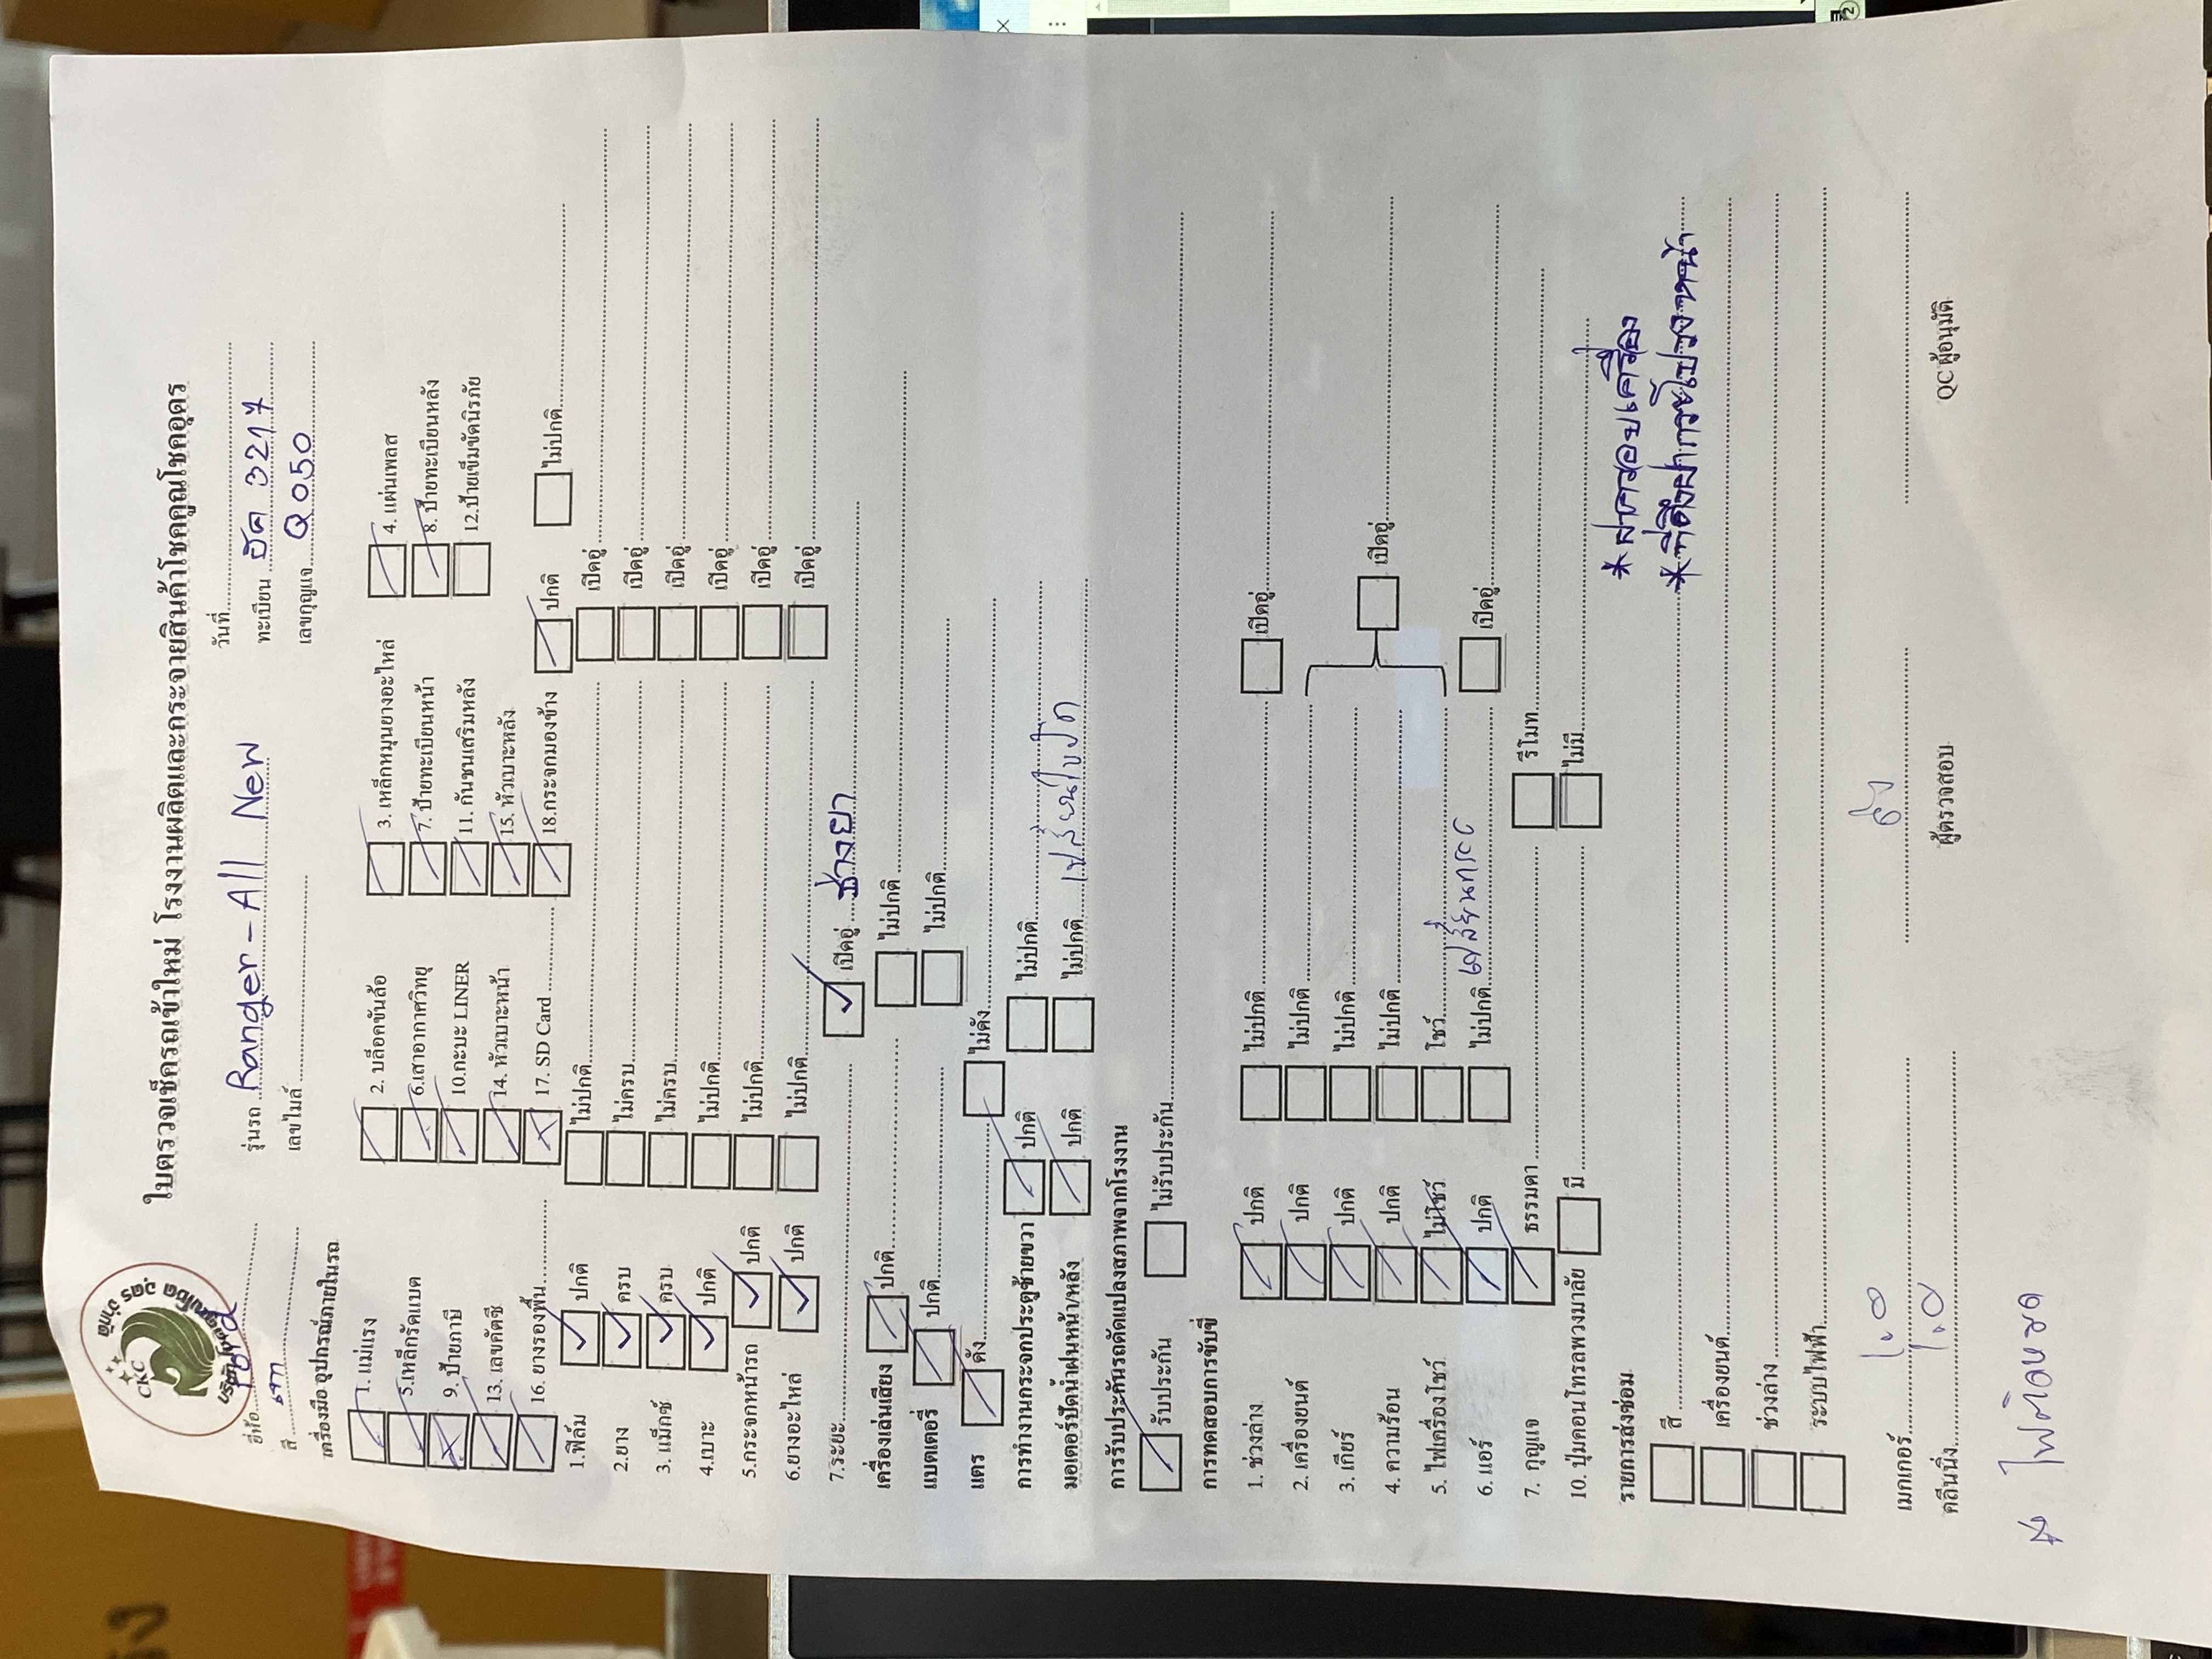 CKC
ใบตรวจเช็ครถเข้าใหม่ โรงงานผลิตและกระจายสินค้าโชคคูณโชคอุดร
ยี่ห้อ Ford รุ่นรถ Ranger - All New วันที่
สี เทา เลขไมล์ ทะเบียน 3217
เลขกุญแจ Q050
เครื่องมือ อุปกรณ์ภายในรถ
1. แม่แรง 2. บล็อคขันล้อ 3. เหล็กหมุนยางอะไหล่ 4. แผ่นเพลส
5.เหล็กรัดแบต 6.เสาอากาศวิทยุ 7. ป้ายทะเบียนหน้า 8. ป้ายทะเบียนหลัง
9. ป้ายภาษี 10.กะบะ LINER 11. กันชนเสริมหลัง 12.ป้ายเข็มขัดนิรภัย
13. เลขคัตซี 14. หัวเบาะหน้า 15. หัวเบาะหลัง
16. ยางรองพื้น 17. SD Card 18.กระจกมองข้าง ปกติ ไม่ปกติ
1.ฟิล์ม ปกติ ไม่ปกติ เปิดอู่
2.ยาง ครบ ไม่ครบ เปิดอู่
3. แม็กซ์ ครบ ไม่ครบ เปิดอู่
4.เบาะ ปกติ ไม่ปกติ เปิดอู่
5.กระจกหน้ารถ ปกติ ไม่ปกติ เปิดอู่
6.ยางอะไหล่ ปกติ ไม่ปกติ เปิดอู่
7.ระยะ เปิดอู่ ช่างยา
เครื่องเล่นเสียง ปกติ ไม่ปกติ
แบตเตอรี่ ปกติ ไม่ปกติ
แตร ดัง ไม่ดัง
การทำงานกระจกประตูซ้ายขวา ปกติ ไม่ปกติ
มอเตอร์ปัดน้ำฝนหน้า/หลัง ปกติ ไม่ปกติ เปลี่ยนใบปัด
การรับประกันรถดัดแปลงสภาพจากโรงงาน
รับประกัน ไม่รับประกัน
การทดสอบการขับขี่
1. ช่วงล่าง ปกติ ไม่ปกติ เปิดอู่
2. เครื่องยนต์ ปกติ ไม่ปกติ
3. เกียร์ ปกติ ไม่ปกติ เปิดอู่
4. ความร้อน ปกติ ไม่ปกติ
5. ไฟเครื่องโชว์ ไม่โชว์ โชว์
6. แอร์ ปกติ ไม่ปกติ เปลี่ยนกรอง เปิดอู่
7. กุญแจ ธรรมดา รีโมท
10. ปุ่มคอนโทรลพวงมาลัย มี ไม่มี
รายการส่งซ่อม
* ฝาครอบเครื่อง
สี * ที่ดึงฝากระโปรงหน้า
เครื่องยนต์
ช่วงล่าง
ระบบไฟฟ้า
เมกเกอร์
คลีนนิ่ง ผู้ตรวจสอบ QCผู้อนุมัติ